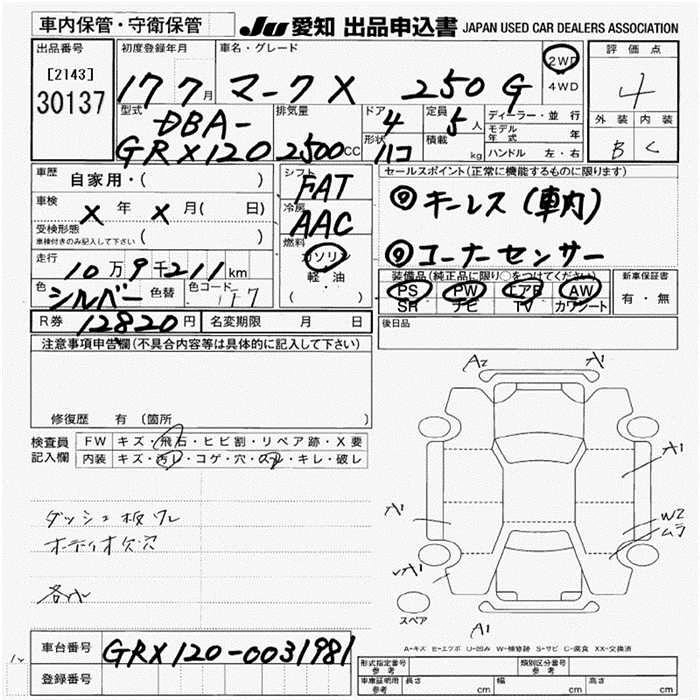 車内保管・守衛保管 JU 愛知 出品申込書 JAPAN USED CAR DEALERS ASSOCIATION
出品番号 初度登録年月 車名・グレード 2WD 4WD 評価点
[2143]
30137
17 7月 マークX 250 G 4
型式 排気量 ドア 定員 ディーラー・並行 外装 内装
DBA- 4 5人 モデル年式 年
GRX120 2500CC 形状 積載 ハンドル 左・右 B C
ハコ kg
車歴 自家用・( ) シフト セールスポイント(正常に機能するものに限ります)
FAT ⑨キーレス(車内)
車検 X年X月( 日) 冷房
AAC
受検形態
車検付きのみ記入して下さい ( ) 燃料 ⑨コーナーセンサー
走行 10万9千211km ガソリン 装備品(純正品に限り○をつけてください) 新車保証書
軽・油 PS PW エアB AW 有・無
色 シルバー 色替 色コード ( ) SR ナビ TV カワシート
R券 12820円 名変期限 月 日 後日品
注意事項申告欄(不具合内容等は具体的に記入して下さい)
A2 A1
修復歴 有 (箇所 )
検査員記入欄 FW キズ・飛石・ヒビ割・リペア跡・X要
内装 キズ・汚レ・コゲ・穴・スレ・キレ・破レ
A1
A1
W2
ムラ
ダッシュ板ワレ
オーディオ欠穴
A1
スペア
A1
A-キズ E-エクボ U-凹み W-補修跡 S-サビ C-腐食 XX-交換済
車台番号 GRX120-0031981
登録番号
形式指定番号 参考 類別区分番号 参考
車庫証明用 参考 長さ cm 幅 cm 高さ cm